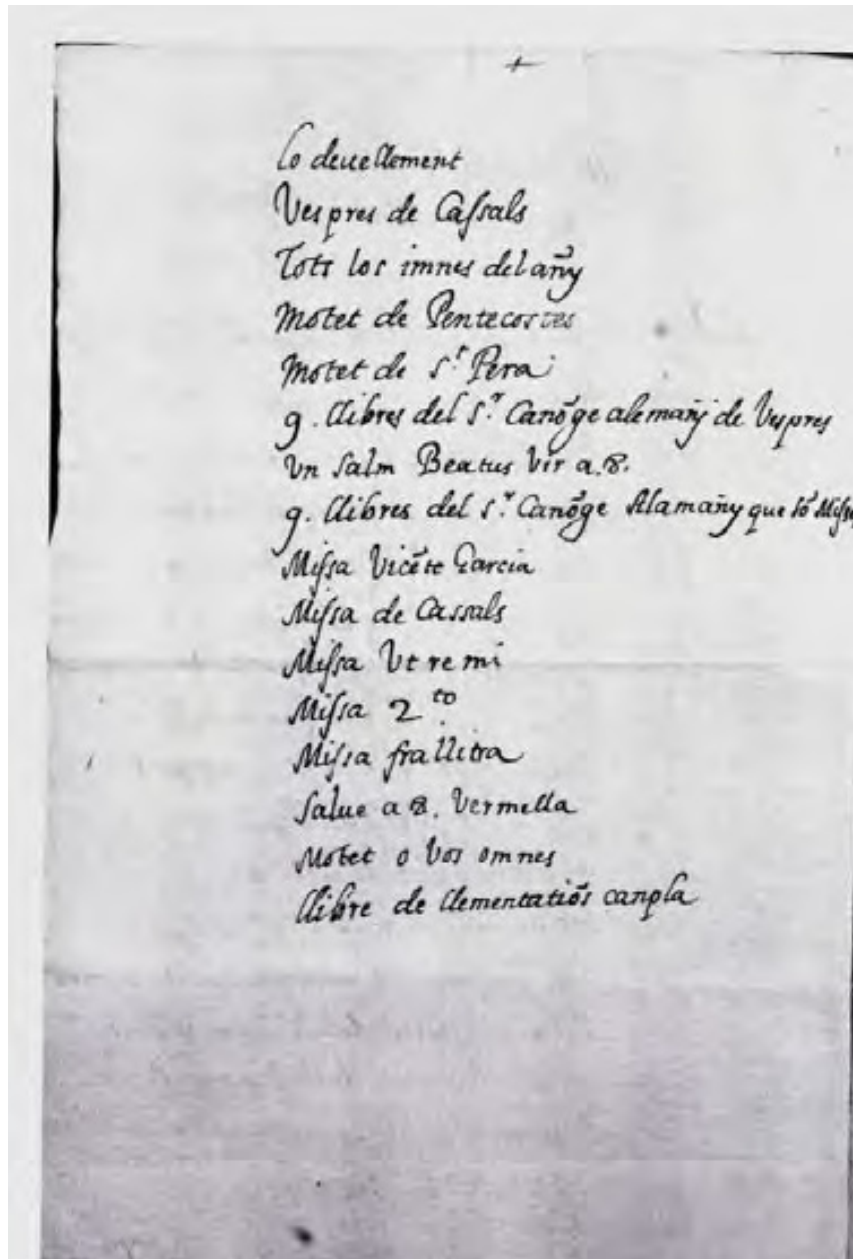 +
Lo deuellement
Vespres de Cassals
Tots los imnes del añy
Motet de Pentecostes
Motet de S.t Pera
9. llibres del S.r Canõge alemañy de Vespres
Vn Salm Beatus Vir a.8.
9. llibres del S.r Canõge Alamañy que sõ Missa
Missa Vicẽte Garcia
Missa de Cassals
Missa Vt re mi
Missa 2to
Missa fra llitra
Salue a 8. Vermella
Motet o Vos omnes
llibre de llementatiõs canpla